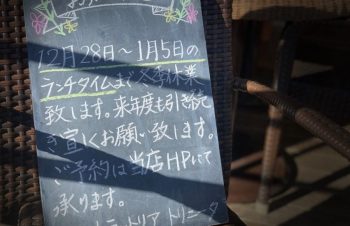 12月28日〜1月5日の
ランチタイムまで冬季休業
致します。来年度も引き続
き宜しくお願い致します。
ご予約は当店HPにて
承ります。
トラットリア